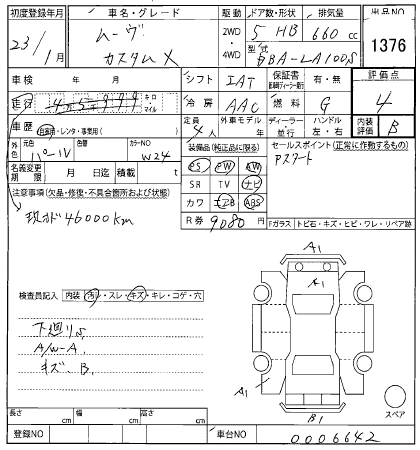 初度登録年月 車名・グレード 駆動 ドア数・形状 排気量 出品NO
23/1月 ムーヴ カスタムX 2WD・4WD 5 HB 660cc 1376
型式 DBA-LA100S
車検 年 月 シフト IAT 保証書 有・無 評価点
走行 キロ・マイル 冷房 AAC 燃料 G 4
車歴 自家用・レンタ・事業用( ) 定員 4人 外車モデル 年 ディーラー 並行 ハンドル 左・右 内装評価 B
外色 元色 パール 色替 カラーNO W24
装備品(純正品に限る) セールスポイント(正常に作動するもの)
名義変更期限 月 日迄 積載 t
PS PW AW アスマート
SR TV ナビ
カワ エアB ABS
R券 9080円
注意事項(欠品・修復・不具合箇所および状態)
現メーター46000km
Fガラス トビ石・キズ・ヒビ・ワレ・リペア跡
検査員記入 内装 汚レ・スレ・キズ・キレ・コゲ・穴
下廻りS
A/W-A.
キズ、B.
A1
A1
A1
B1
スペア
長さ cm 幅 cm 高さ cm
登録NO 車台NO 0006642